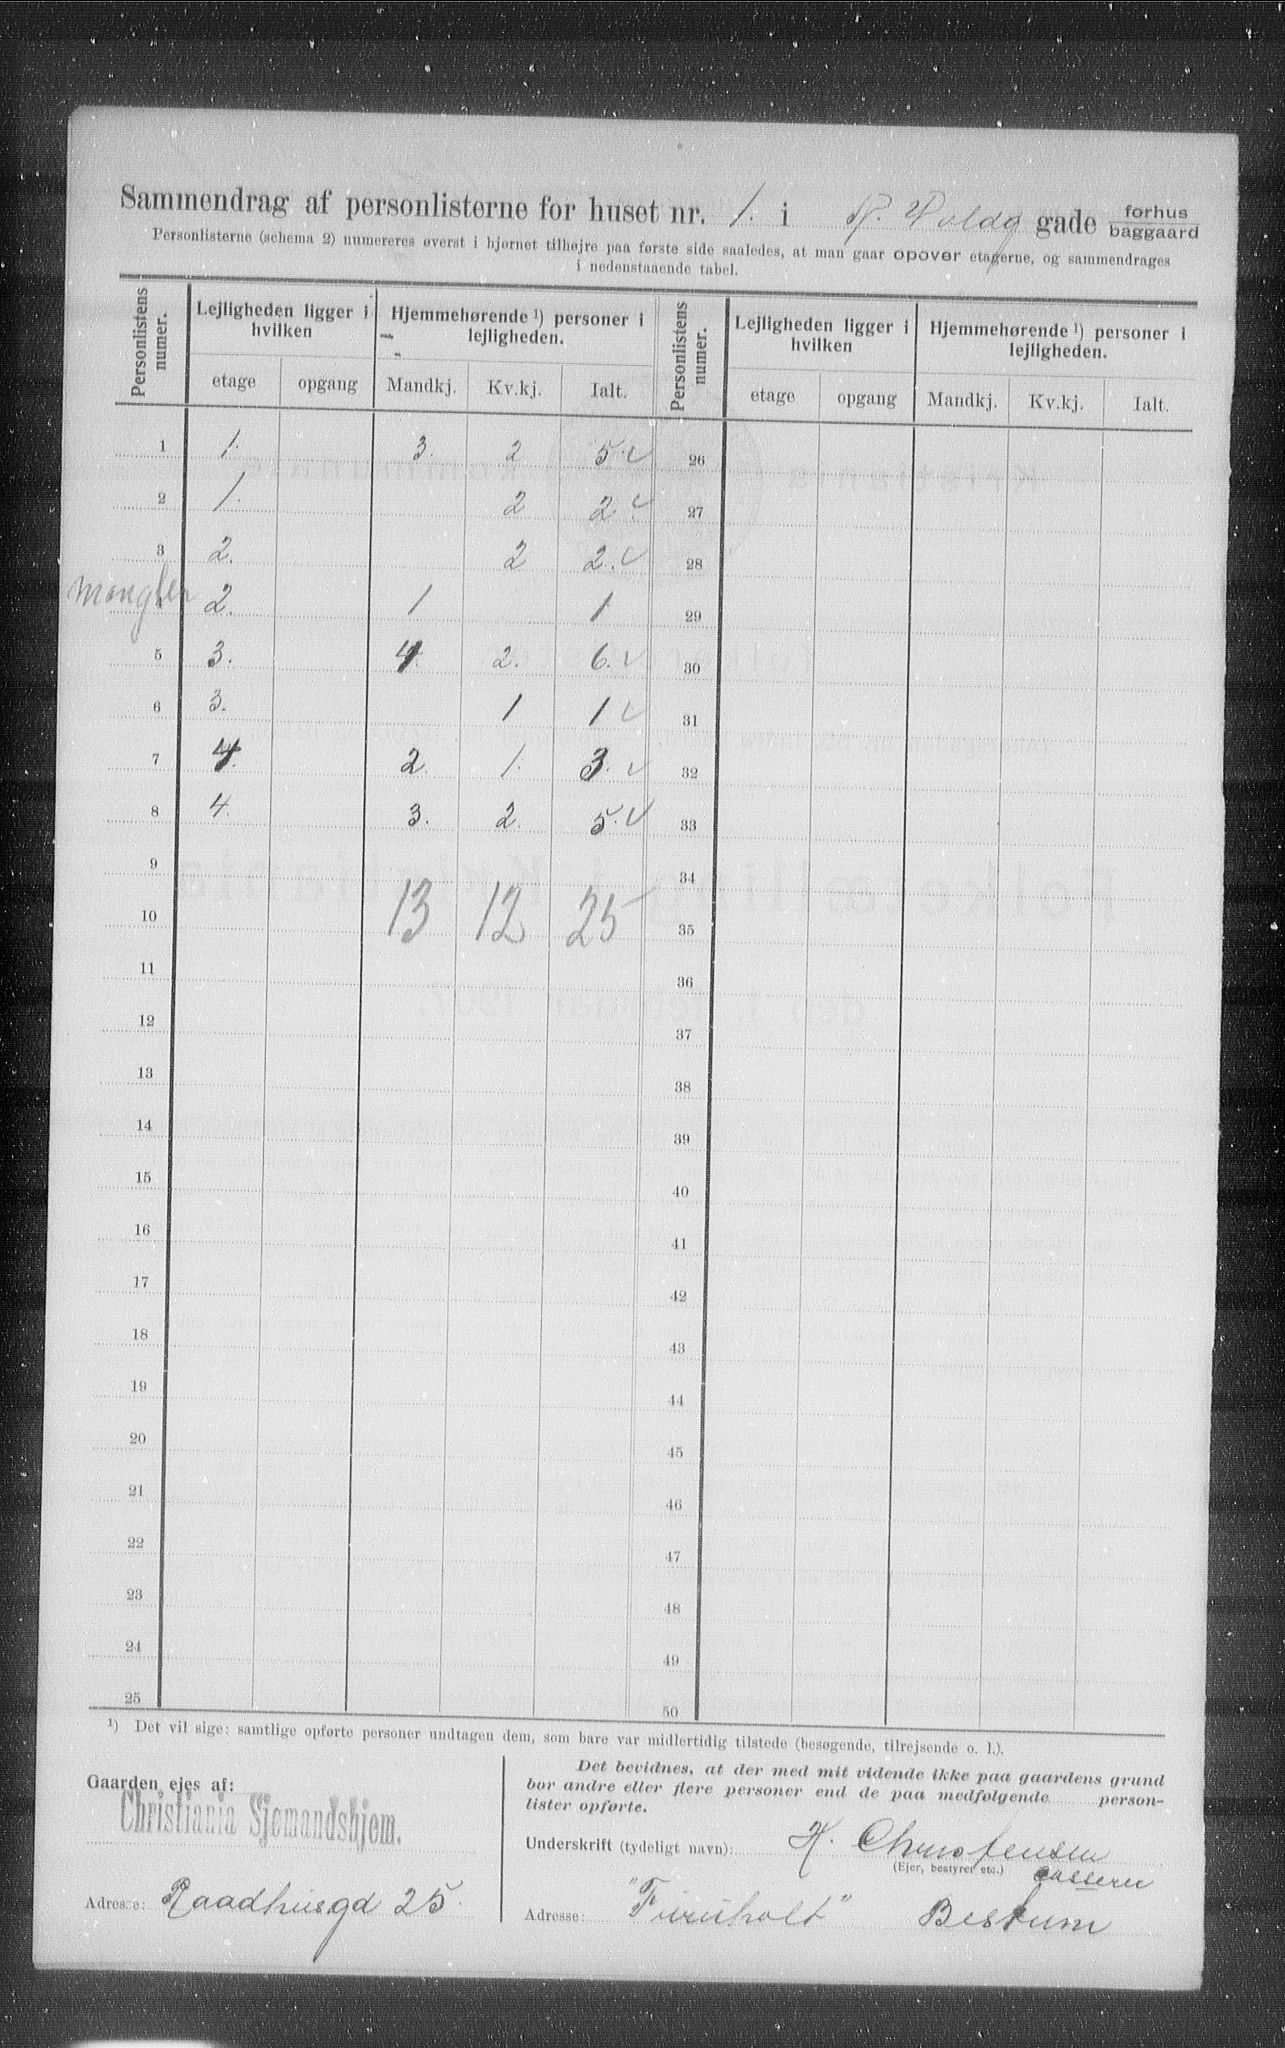 Sammendrag af personlisterne for huset nr. 1. i N. Voldg gade forhus baggaard
Personlisterne (schema 2) numereres øverst i hjørnet tilhøjre paa første side saaledes, at man gaar opover etagerne, og sammendrages
i nedenstaaende tabel.
Personlistens numer. Lejligheden ligger i hvilken Hjemmehørende ¹) personer i lejligheden. Personlistens numer. Lejligheden ligger i hvilken Hjemmehørende ¹) personer i lejligheden.
etage opgang Mandkj. Kv.kj. Ialt. etage opgang Mandkj. Kv.kj. Ialt.
1 1. 3. 2 5. ✓ 26
2 1. 2 2. ✓ 27
3 2. 2 2. ✓ 28
Mangler 4 2. 1 1 29
5 3. 4 2. 6. ✓ 30
6 3. 1 1 ✓ 31
7 4. 2. 1. 3. ✓ 32
8 4. 3. 2. 5. ✓ 33
9 34
10 13 12 25 35
11 36
12 37
13 38
14 39
15 40
16 41
17 42
18 43
19 44
20 45
21 46
22 47
23 48
24 49
25 50
¹) Det vil sige: samtlige opførte personer undtagen dem, som bare var midlertidig tilstede (besøgende, tilrejsende o. l.).
Gaarden ejes af:
Christiania Sjømandshjem.
Adresse: Raadhusgd 25.
Det bevidnes, at der med mit vidende ikke paa gaardens grund
bor andre eller flere personer end de paa medfølgende person-
lister opførte.
Underskrift (tydeligt navn): H. Christensen
(Ejer, bestyrer etc.) Casserer
Adresse: "Furuholt" Bestum